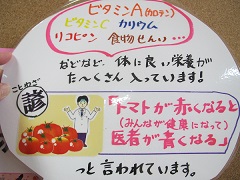 ビタミンA(カロテン)
ビタミンC カリウム
リコピン 食物せんい…
などなど、体に良い栄養が
た〜くさん入っています!
ことわざ
諺
「トマトが赤くなると
(みんなが健康になって)
医者が青くなる」
っと言われています。